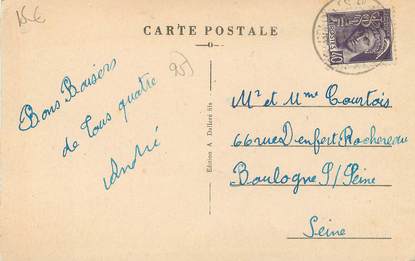 15€
CARTE POSTALE
95)
Bons Baisers
de tous quatre
André
Edition A. Dollard fils
Mr et Mme Courtois
66 rue Denfert Rochereau
Boulogne S/Seine
Seine